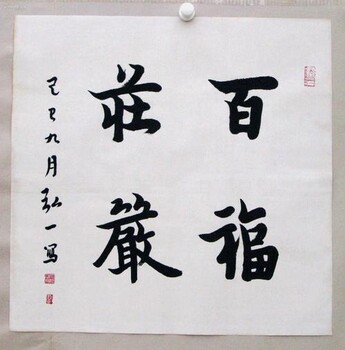 百福
莊嚴
己巳九月弘一寫